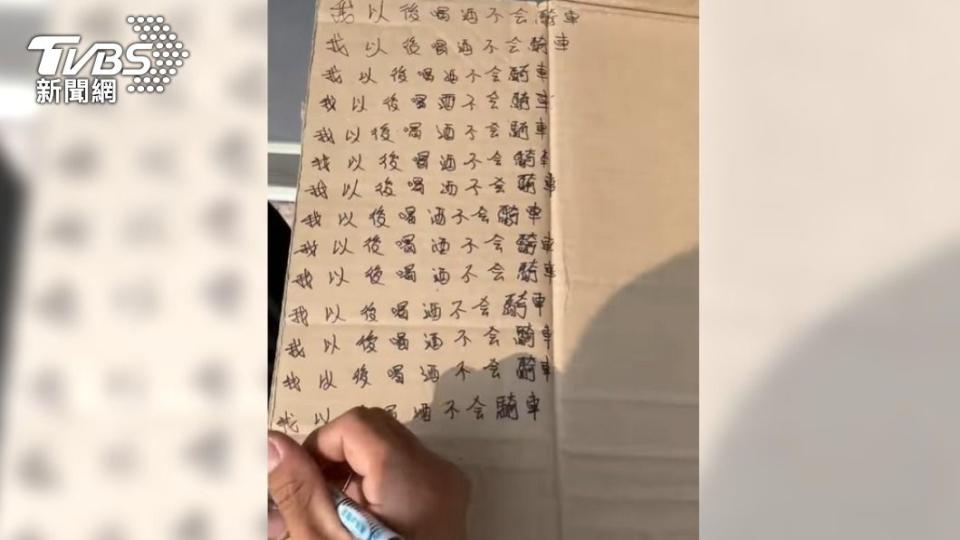 TVBS
新聞網
我以後喝酒不会騎車
我以後喝酒不会騎車
我以後喝酒不会騎車
我以後喝酒不会騎車
我以後喝酒不会騎車
我以後喝酒不会騎車
我以後喝酒不会騎車
我以後喝酒不会騎車
我以後喝酒不会騎車
我以後喝酒不会騎車
我以後喝酒不会騎車
我以後喝酒不会騎車
我以後喝酒不会騎車
我以喝酒不会騎車